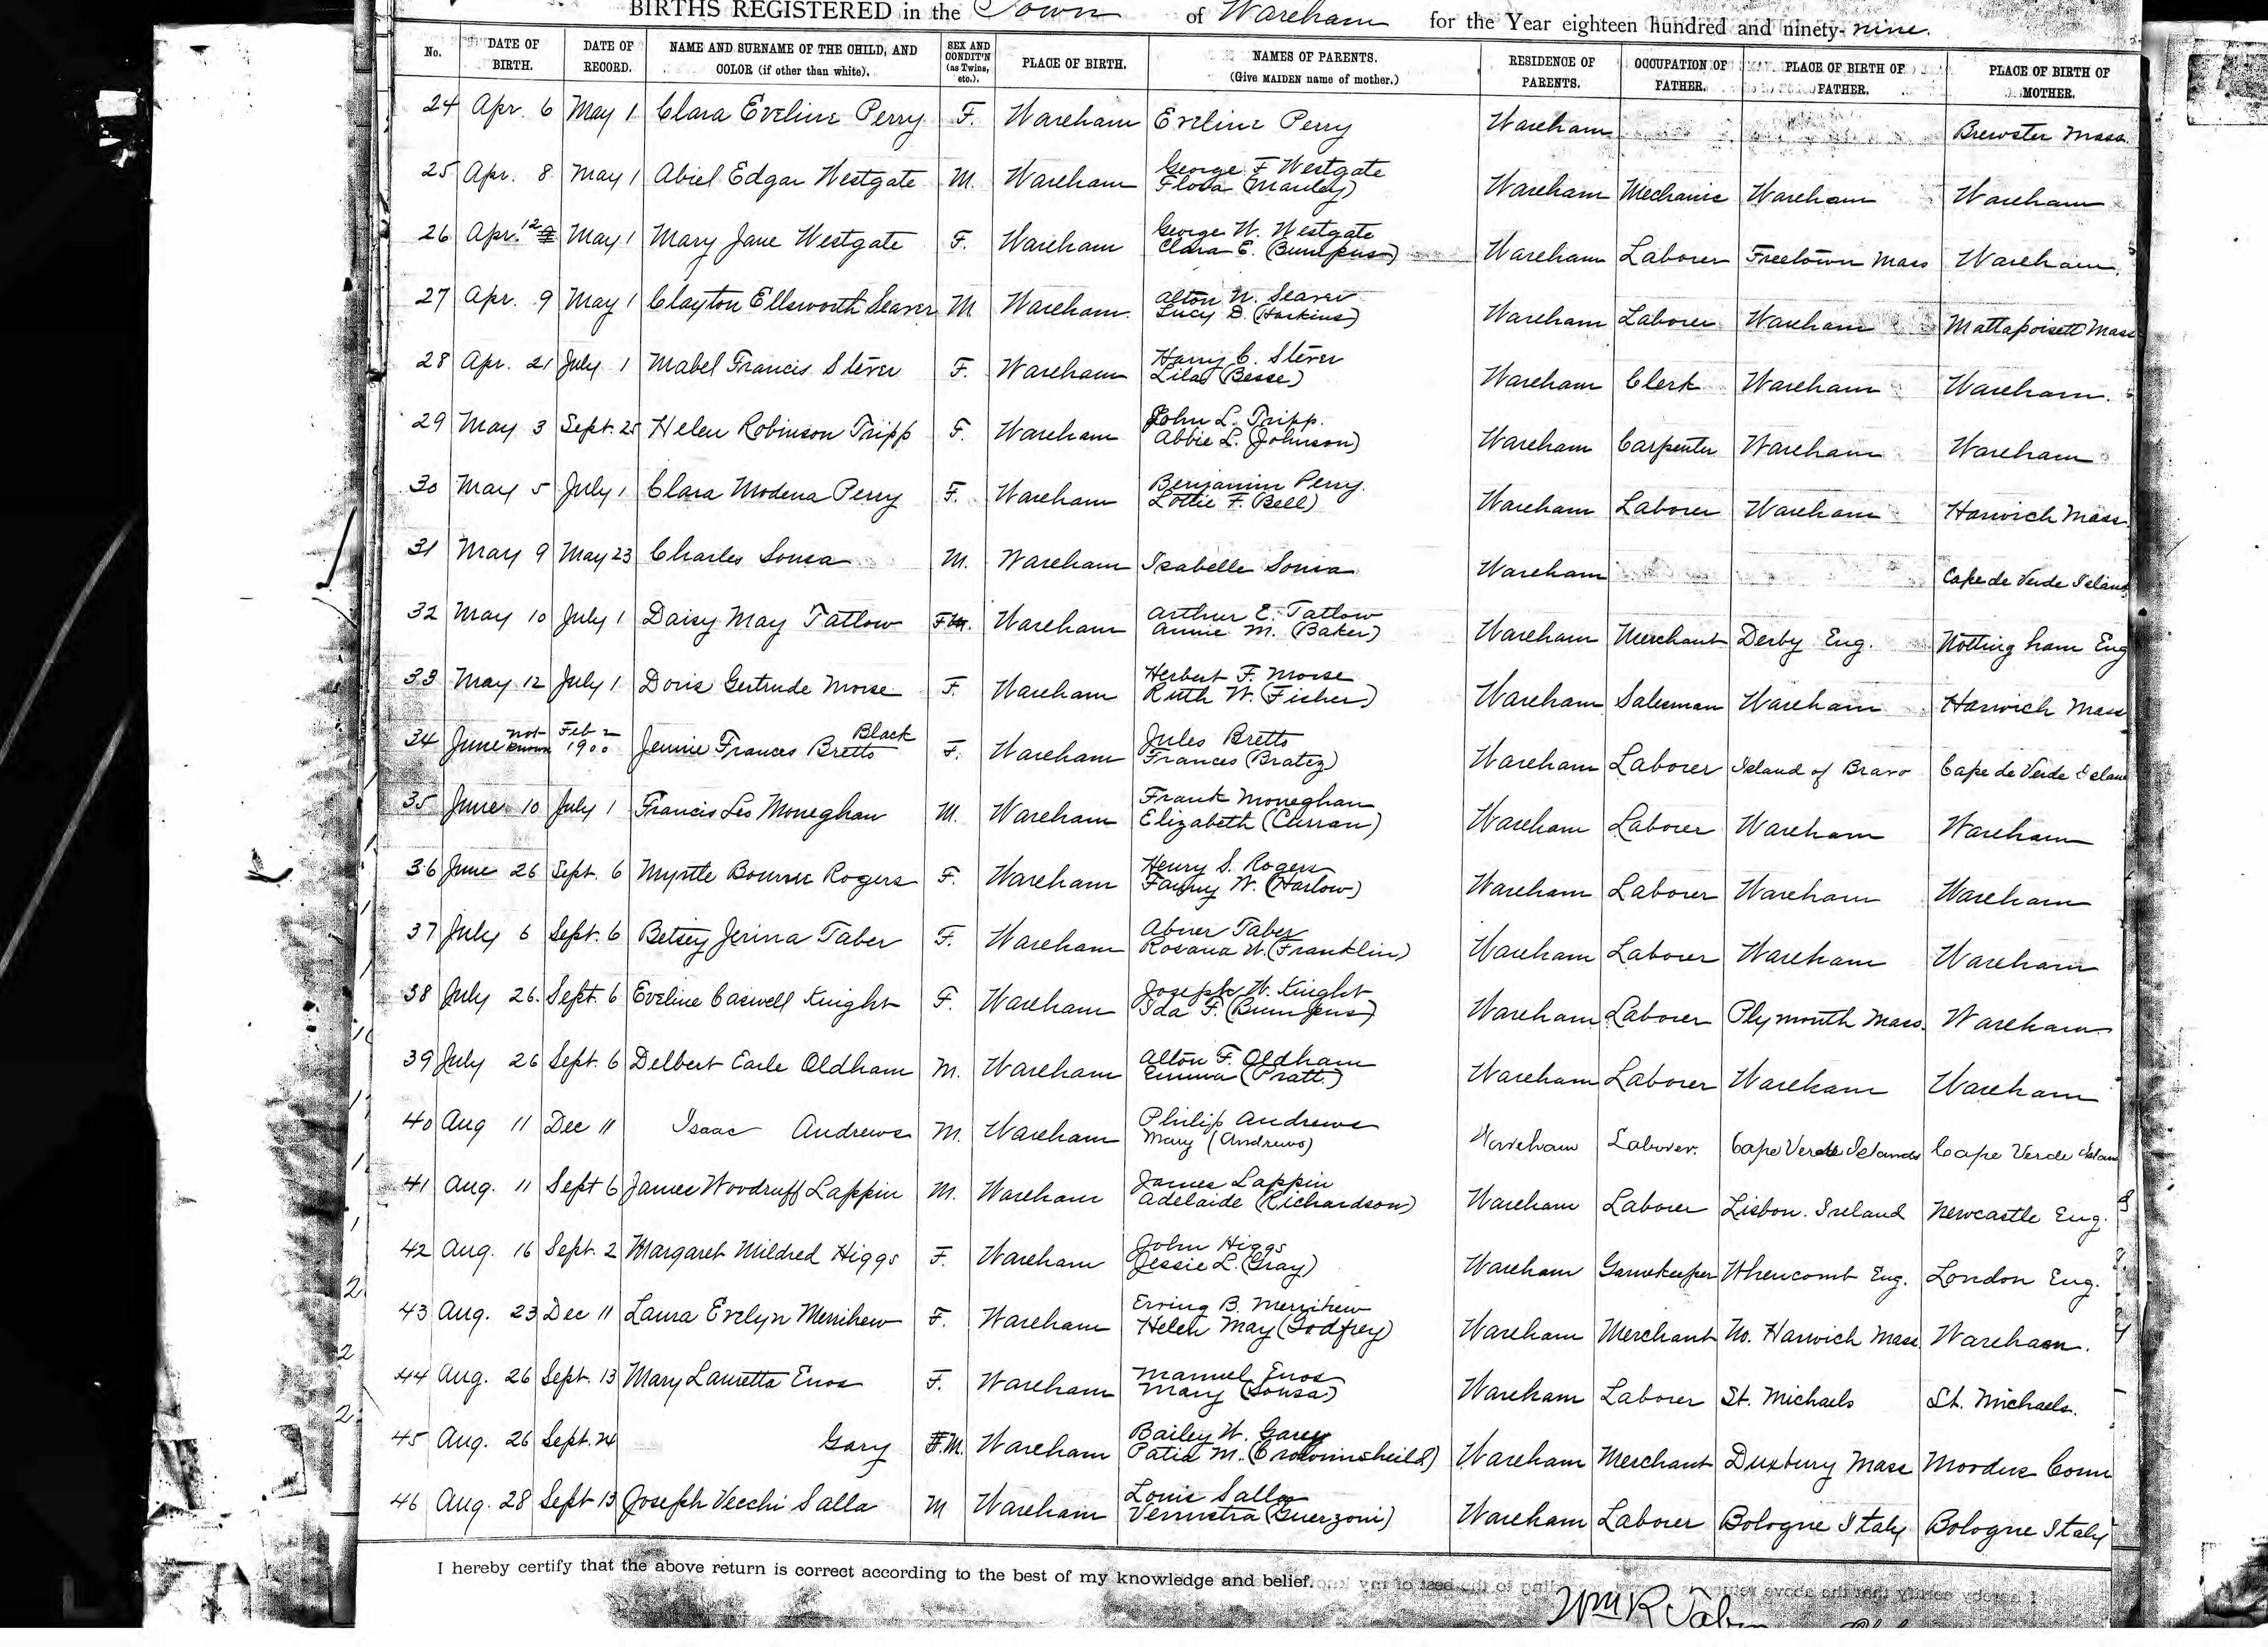 BIRTHS REGISTERED in the Town of Wareham for the Year eighteen hundred and ninety-nine.
No. DATE OF BIRTH. DATE OF RECORD. NAME AND SURNAME OF THE CHILD, AND COLOR (if other than white). SEX AND CONDIT'N (as Twins, etc.). PLACE OF BIRTH. NAMES OF PARENTS. (Give MAIDEN name of mother.) RESIDENCE OF PARENTS. OCCUPATION OF FATHER. PLACE OF BIRTH OF FATHER. PLACE OF BIRTH OF MOTHER.
24 Apr. 6 May 1 Clara Eveline Perry F. Wareham Eveline Perry Wareham Brewster Mass.
25 Apr. 8 May 1 Abiel Edgar Westgate M. Wareham George F Westgate Flora (Manley) Wareham Mechanic Wareham Wareham
26 Apr. 12 May 1 Mary Jane Westgate F. Wareham George W. Westgate Clara E. (Bumpus) Wareham Laborer Freetown Mass Wareham.
27 Apr. 9 May 1 Clayton Ellsworth Seaver M Wareham. Alton N. Seaver Lucy D. (Harkins) Wareham Laborer Wareham Mattapoisett Mass
28 Apr. 21 July 1 Mabel Francis Stever F. Wareham Harry C. Stever Lila (Besse) Wareham Clerk Wareham Wareham.
29 May 3 Sept. 25 Helen Robinson Tripp F. Wareham John L. Tripp. Abbie L. (Johnson) Wareham Carpenter Wareham Wareham
30 May 5 July 1 Clara Modena Perry F. Wareham Benjamin Perry. Lottie F. (Bell) Wareham Laborer Wareham Harwich Mass.
31 May 9 May 23 Charles Sousa M. Wareham Isabelle Sousa Wareham Cape de Verde Island
32 May 10 July 1 Daisy May Tatlow F M. Wareham Arthur E. Tatlow Annie M. (Baker) Wareham Merchant Derby Eng. Nottingham Eng
33 May 12 July 1 Doris Gertrude Morse F. Wareham Herbert F. Morse Ruth W. (Fisher) Wareham Salesman Wareham Harwich Mass
34 June not known Feb 2 1900 Jennie Frances Bretto Black F. Wareham Jules Bretto Frances (Bratez) Wareham Laborer Island of Bravo Cape de Verde Islan
35 June 10 July 1 Francis Leo Moneghan M. Wareham Frank Moneghan Elizabeth (Curran) Wareham Laborer Wareham Wareham
36 June 26 Sept. 6 Myrtle Bourne Rogers F. Wareham Henry S. Rogers Fanny W. (Harlow) Wareham Laborer Wareham Wareham
37 July 6 Sept. 6 Betsey Jerina Taber F. Wareham Abner Taber Rosana W. (Franklin) Wareham Laborer Wareham Wareham
38 July 26. Sept. 6 Eveline Caswell Knight F. Wareham Joseph W. Knight Ida F. (Bumpus) Wareham Laborer Plymouth Mass. Wareham
39 July 26 Sept. 6 Delbert Earle Oldham M. Wareham Alton F. Oldham Emma (Pratt.) Wareham Laborer Wareham Wareham
40 Aug 11 Dec 11 Isaac Andrews M. Wareham Philip Andrews Mary (Andrews) Wareham Laborer. Cape Verde Islands Cape Verde Islan
41 Aug. 11 Sept 6 James Woodruff Lappin M. Wareham James Lappin Adelaide (Richardson) Wareham Laborer Lisbon. Ireland Newcastle Eng.
42 Aug. 16 Sept. 2 Margaret Mildred Higgs F. Wareham John Higgs Jessie L. (Gray) Wareham Gamekeeper Whencomb Eng. London Eng.
43 Aug. 23 Dec 11 Laura Evelyn Merrihew F. Wareham Erving B. Merrihew Helen May (Godfrey) Wareham Merchant No. Harwich Mass Wareham.
44 Aug. 26 Sept. 13 Mary Lauretta Enos F. Wareham Manuel Enos Mary (Sousa) Wareham Laborer St. Michaels St. Michaels.
45 Aug. 26 Sept. 24 Gary F. M. Wareham Bailey W. Garey Patia M. (Crowninsheild) Wareham Merchant Duxbury Mass Moodus Conn
46 Aug. 28 Sept 13 Joseph Vecchi Salla M Wareham Louis Salla Venustra (Guerzoni) Wareham Laborer Bologne Italy Bologne Italy
I hereby certify that the above return is correct according to the best of my knowledge and belief.
Wm R